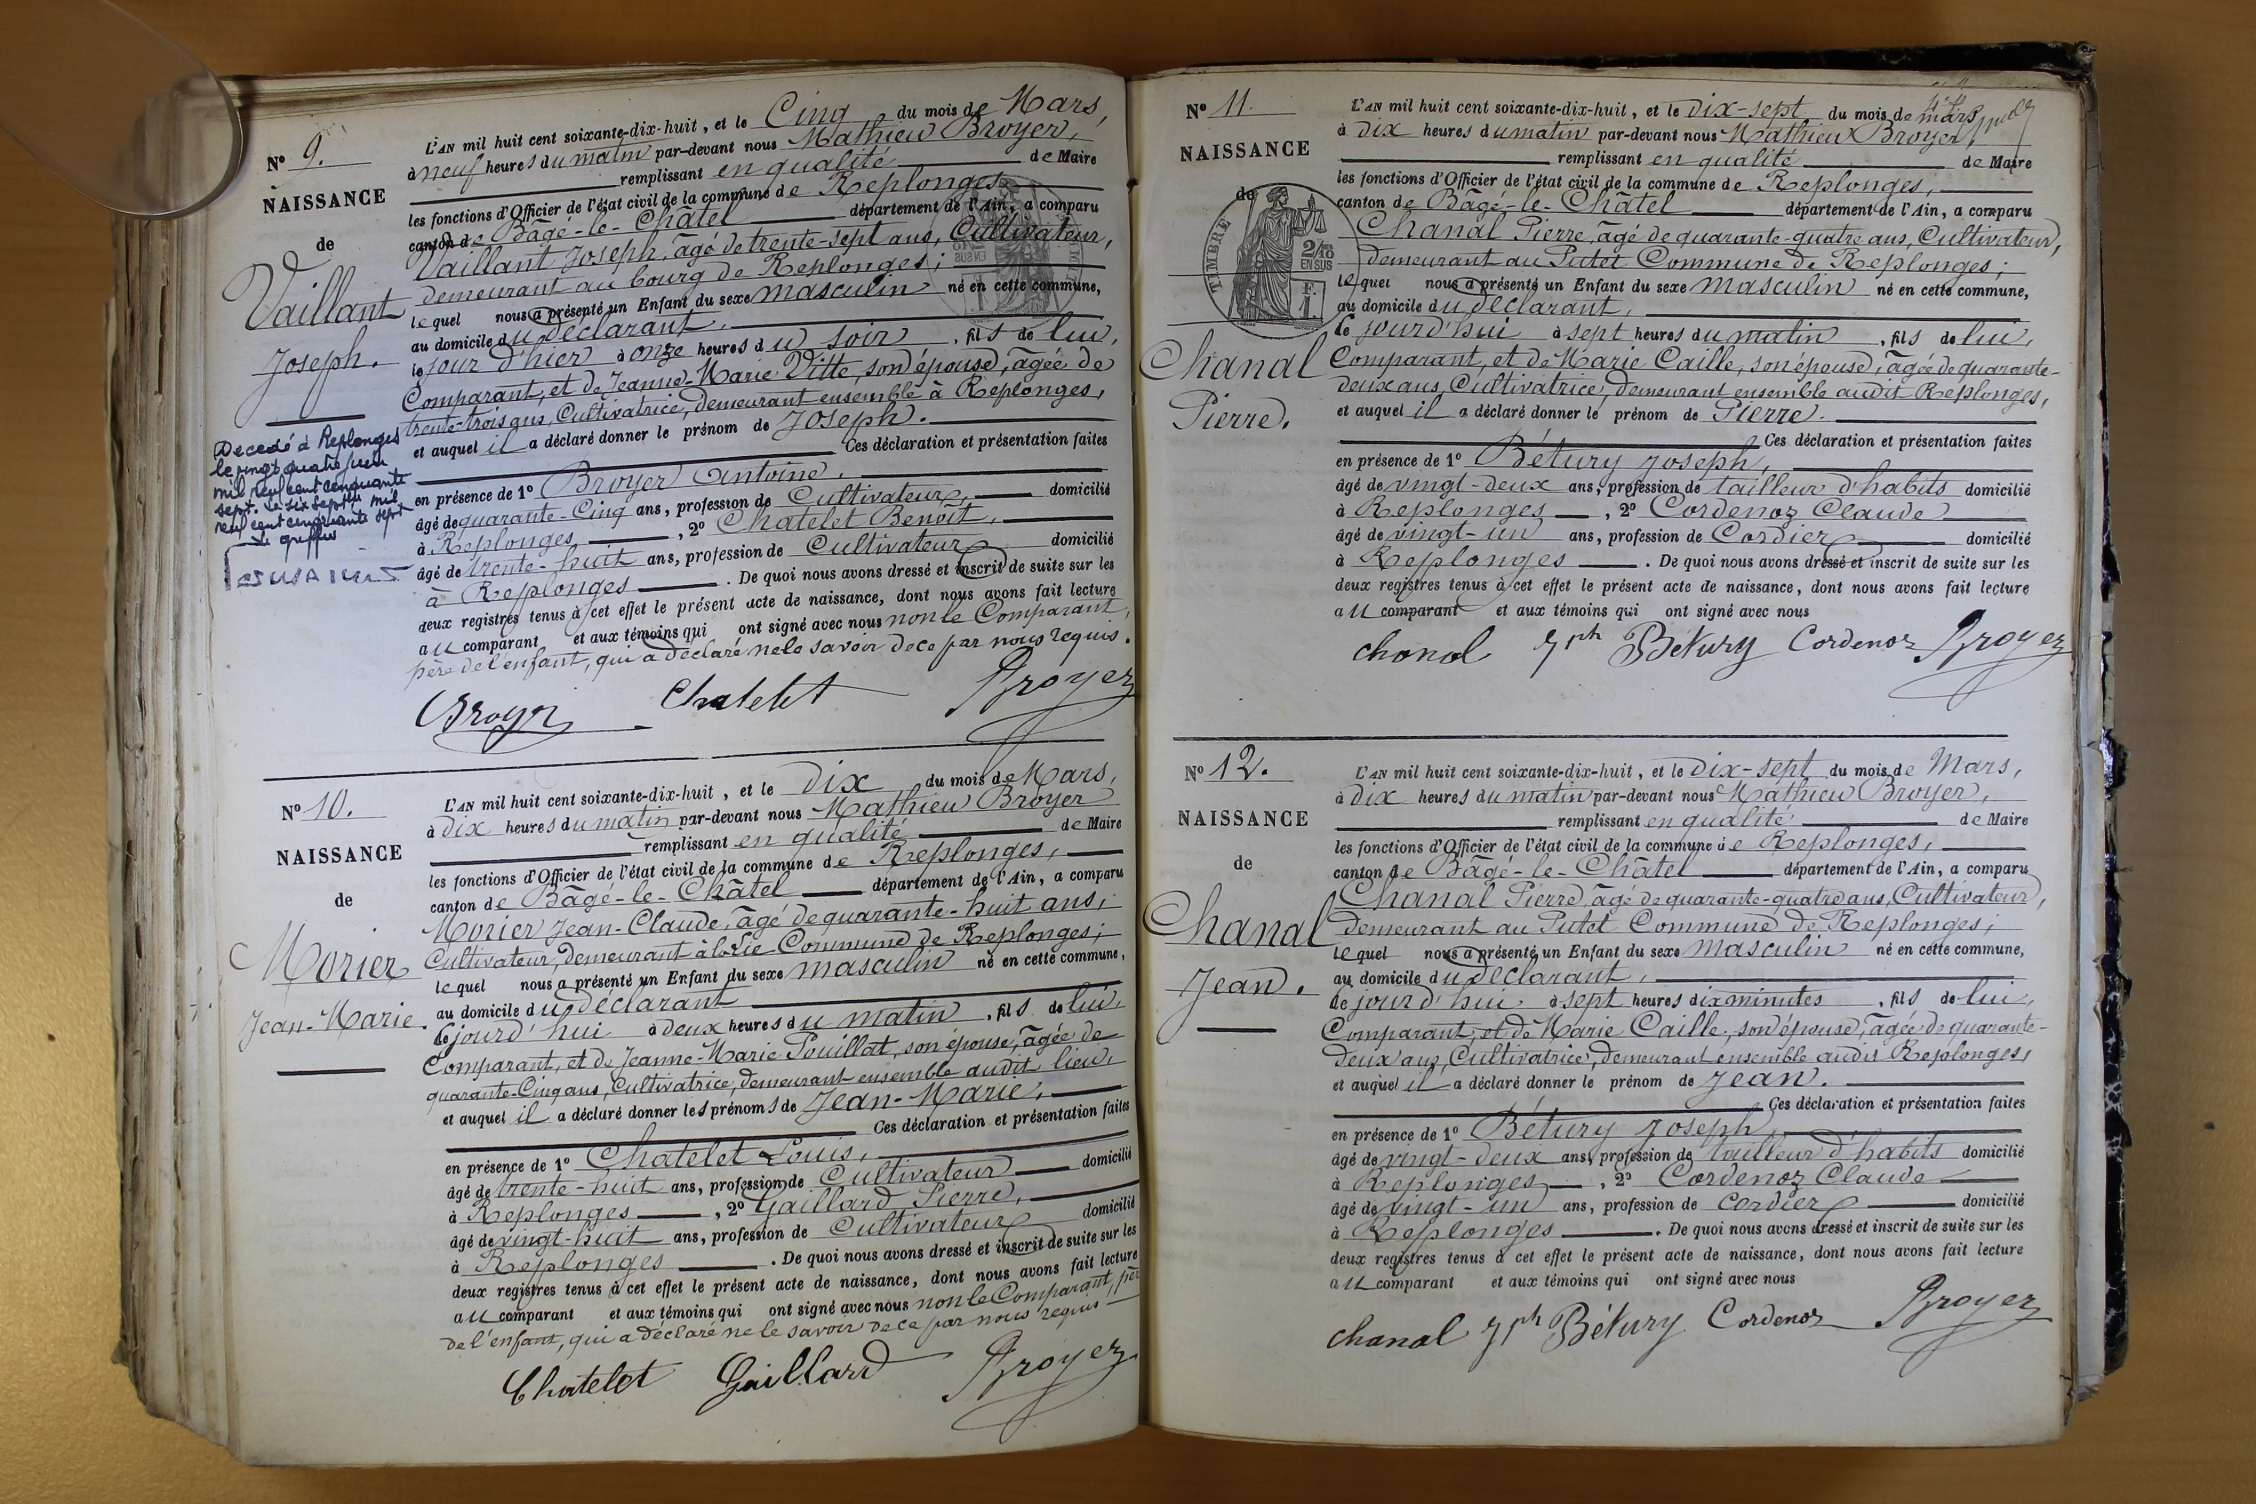 N° 9.
NAISSANCE
de
Vaillant
Joseph.
Decedé à Replonges
le vingt quatre juin
mil neuf cent cinquante
sept. Le six septbre mil
neuf cent cinquante sept
Le greffier
L'AN mil huit cent soixante-dix-huit, et le Cinq du mois de Mars,
à neuf heures du matin par-devant nous Mathieu Broyer,
remplissant en qualité de Maire
les fonctions d'Officier de l'état civil de la commune de Replonges
canton de Bâgé-le-Châtel département de l'Ain, a comparu
Vaillant Joseph, âgé de trente-sept ans, Cultivateur,
demeurant au bourg de Replonges;
lequel nous a présenté un Enfant du sexe masculin né en cette commune,
au domicile du déclarant,
le jour d'hier à onze heures du soir, fils de lui,
Comparant, et de Jeanne-Marie Vitte, son épouse, âgée de
trente-trois ans, Cultivatrice, demeurant ensemble à Replonges,
et auquel il a déclaré donner le prénom de Joseph.
Ces déclaration et présentation faites
en présence de 1° Broyer Antoine,
âgé de quarante-Cinq ans, profession de Cultivateur, domicilié
à Replonges, 2° Chatelet Benoît,
âgé de trente-huit ans, profession de Cultivateur domicilié
à Replonges. De quoi nous avons dressé et inscrit de suite sur les
deux registres tenus à cet effet le présent acte de naissance, dont nous avons fait lecture
au comparant et aux témoins qui ont signé avec nous non le Comparant,
père de l'enfant, qui a déclaré ne le savoir de ce par nous requis.
Broyer Chatelet Broyer
N° 10.
NAISSANCE
de
Morier
Jean-Marie.
L'AN mil huit cent soixante-dix-huit, et le dix du mois de Mars,
à dix heures du matin par-devant nous Mathieu Broyer
remplissant en qualité de Maire
les fonctions d'Officier de l'état civil de la commune de Replonges,
canton de Bâgé-le-Châtel département de l'Ain, a comparu
Morier Jean-Claude, âgé de quarante-huit ans,
Cultivateur, demeurant à Commune de Replonges;
lequel nous a présenté un Enfant du sexe masculin né en cette commune,
au domicile du déclarant
le jourd'hui à deux heures du matin, fils de lui,
Comparant, et de Jeanne-Marie Pouillat, son épouse, âgée de
quarante-Cinq ans, Cultivatrice, demeurant ensemble audit lieu,
et auquel il a déclaré donner les prénoms de Jean-Marie,
Ces déclaration et présentation faites
en présence de 1° Chatelet Louis,
âgé de trente-huit ans, profession de Cultivateur domicilié
à Replonges, 2° Gaillard Pierre,
âgé de vingt-huit ans, profession de Cultivateur domicilié
à Replonges. De quoi nous avons dressé et inscrit de suite sur les
deux registres tenus à cet effet le présent acte de naissance, dont nous avons fait lecture
au comparant et aux témoins qui ont signé avec nous non le Comparant, père
de l'enfant, qui a déclaré ne le savoir de ce par nous requis
Chatelet Gaillard Broyer
N° 11.
NAISSANCE
de
TIMBRE
2/10
EN SUS
F.
1.
Chanal
Pierre.
L'AN mil huit cent soixante-dix-huit, et le dix-sept du mois de mars
à dix heures du matin par-devant nous Mathieu Broyer,
remplissant en qualité de Maire
les fonctions d'Officier de l'état civil de la commune de Replonges,
canton de Bâgé-le-Châtel département de l'Ain, a comparu
Chanal Pierre, âgé de quarante-quatre ans, Cultivateur,
demeurant au Putet Commune de Replonges;
lequel nous a présenté un Enfant du sexe masculin né en cette commune,
au domicile du déclarant,
le jourd'hui à sept heures du matin, fils de lui,
Comparant, et de Marie Caille, son épouse, âgée de quarante-
deux ans, Cultivatrice, demeurant ensemble audit Replonges,
et auquel il a déclaré donner le prénom de Pierre.
Ces déclaration et présentation faites
en présence de 1° Bétury Joseph,
âgé de vingt-deux ans, profession de tailleur d'habits domicilié
à Replonges, 2° Cordenoz Claude
âgé de vingt-un ans, profession de Cordier domicilié
à Replonges. De quoi nous avons dressé et inscrit de suite sur les
deux registres tenus à cet effet le présent acte de naissance, dont nous avons fait lecture
au comparant et aux témoins qui ont signé avec nous
chanal Jph Bétury Cordenoz Broyer
N° 12.
NAISSANCE
de
Chanal
Jean.
L'AN mil huit cent soixante-dix-huit, et le dix-sept du mois de Mars,
à dix heures du matin par-devant nous Mathieu Broyer,
remplissant en qualité de Maire
les fonctions d'Officier de l'état civil de la commune de Replonges,
canton de Bâgé-le-Châtel département de l'Ain, a comparu
Chanal Pierre, âgé de quarante-quatre ans, Cultivateur,
demeurant au Putet Commune de Replonges;
lequel nous a présenté un Enfant du sexe masculin né en cette commune,
au domicile du déclarant,
le jourd'hui à sept heures dix minutes, fils de lui,
Comparant, et de Marie Caille, son épouse, âgée de quarante-
deux ans, Cultivatrice, demeurant ensemble audit Replonges,
et auquel il a déclaré donner le prénom de Jean.
Ces déclaration et présentation faites
en présence de 1° Bétury Joseph,
âgé de vingt-deux ans, profession de tailleur d'habits domicilié
à Replonges, 2° Cordenoz Claude
âgé de vingt-un ans, profession de cordier domicilié
à Replonges. De quoi nous avons dressé et inscrit de suite sur les
deux registres tenus à cet effet le présent acte de naissance, dont nous avons fait lecture
au comparant et aux témoins qui ont signé avec nous
chanal Jph Bétury Cordenoz Broyer